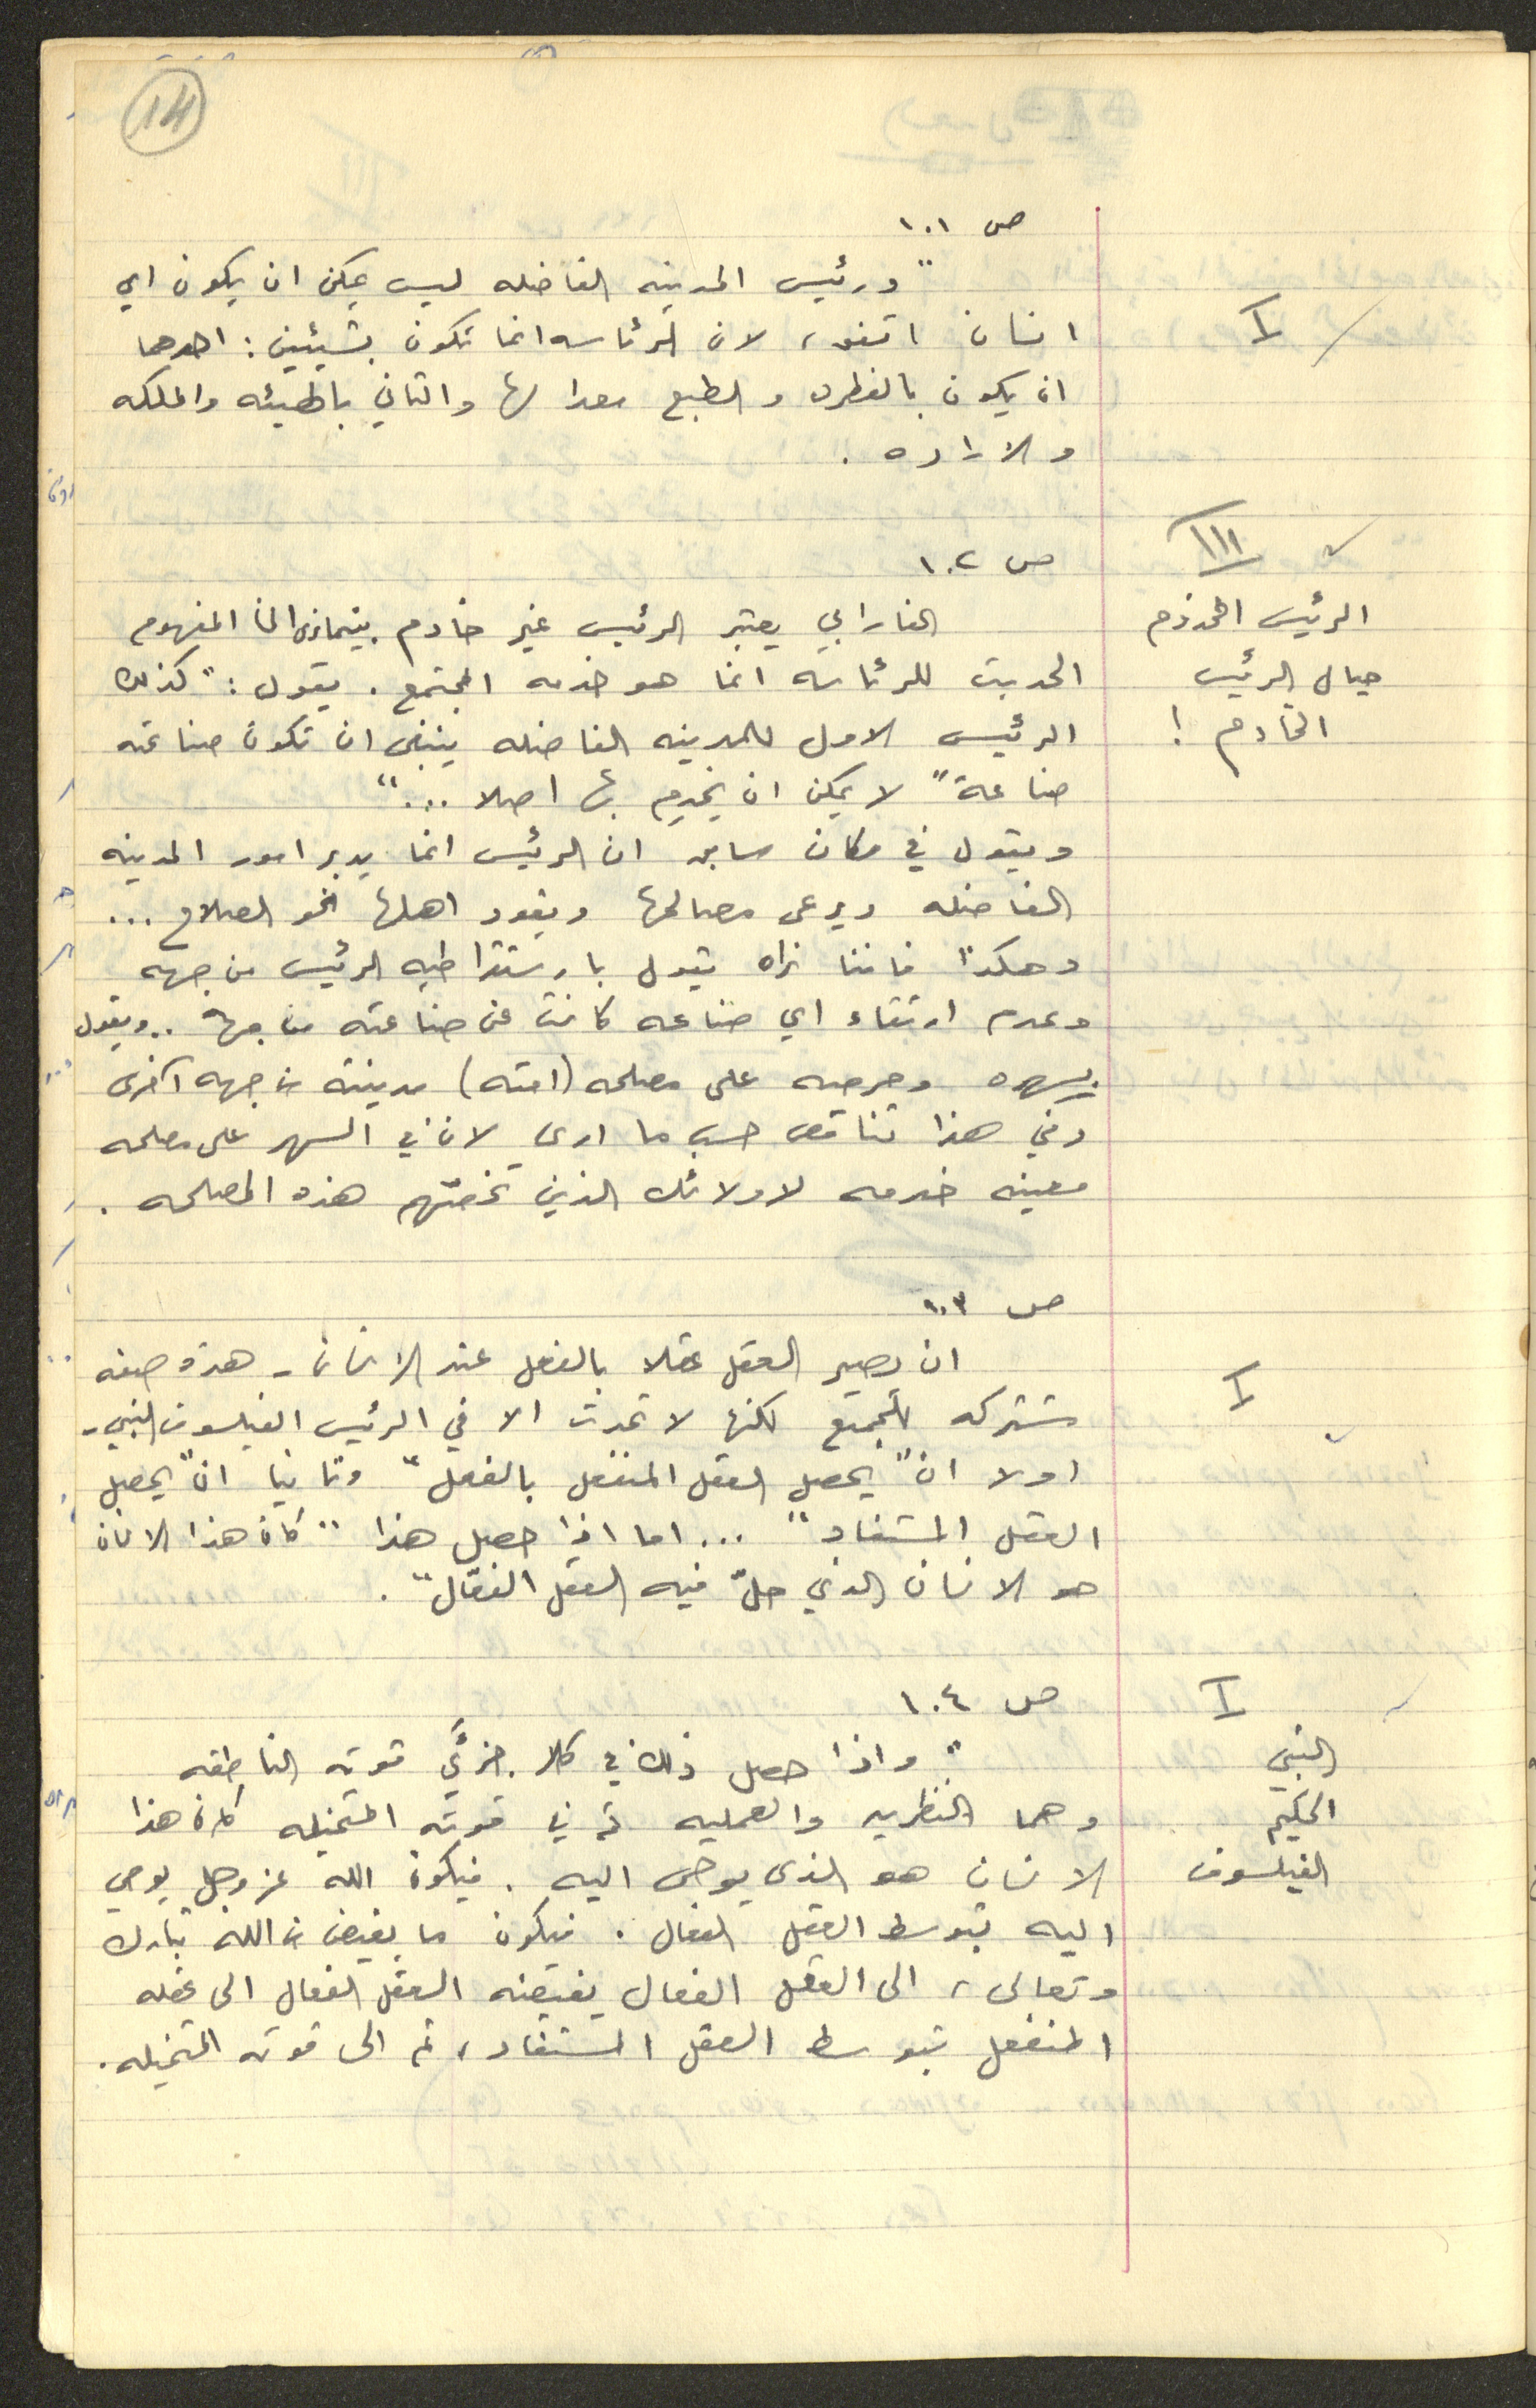 14
ص ١٠١
I
"ورئيس المدينه الفاضله ليس يمكن ان يكون اي
انسان اتفق، لان الرئاسه انما تكون بشيئين: احدهما
ان يكون بالفطره والطبع معدا لها والثاني بالهيئه والملكه
والاراده.
III
ص ١٠٢
الرئيس المخدوم
حيال الرئيس
الخادم!
الفارابي يعتبر الرئيس غير خادم بينما نرى ان المفهوم
الحديث للرئاسه انما هو خدمه المجتمع. يقول: "كذلك
الرئيس الاول للمدينه الفاضله ينبغي ان تكون صناعته
صناعة" لا يمكن ان يخدم بها اصلا ..."
ويقول في مكان سابق ان الرئيس انما يدبر امور المدينه
الفاضله ويرعى مصالحها ويقود اهلها نحو الصلاح ...
وهكذا فاننا نراه يقول بارستقراطيه الرئيس من جهه
وعدم ارتقاء اي صناعه كانت عن صناعته من جهة .. ويقول
بسهره وحرصه على مصلحه (امته) مدينته من جهه اخرى
وفي هذا تناقض حسب ما ارى لان في السهر على مصلحه
معينه خدمه لاولائك الذين تخصّهم هذه المصلحه.
ص ١٠٣
I
ان يصير العقل عقلا بالفعل عند الانسان - هذه صفه
مشتركه للجميع لكنها لا تحدث الا في الرئيس الفيلسوف النبي -
اولا ان "يحصل العقل المنفعل بالفعل" وثانيا ان "يحصل
العقل المستفاد" ... اما اذا حصل هذا "كان هذا الانسان
هو الانسان الذي حلّ فيه العقل الفعّال".
ص ١٠٤
I
النبي
الحكيم
الفيلسوف
"واذا حصل ذلك في كلا جزئي قوته الناطقه
وهما النظريه والعمليه ثم في قوته المتخيله كان هذا
الانسان هو الذي يوحى اليه. فيكون الله عز وجل يوحي
اليه بتوسط العقل الفعال. فيكون ما يفيض من الله تبارك
وتعالى، الى العقل الفعال يفيضه العقل الفعال الى عقله
المنفعل بتوسط العقل المستفاد، ثم الى قوته المتخيله.